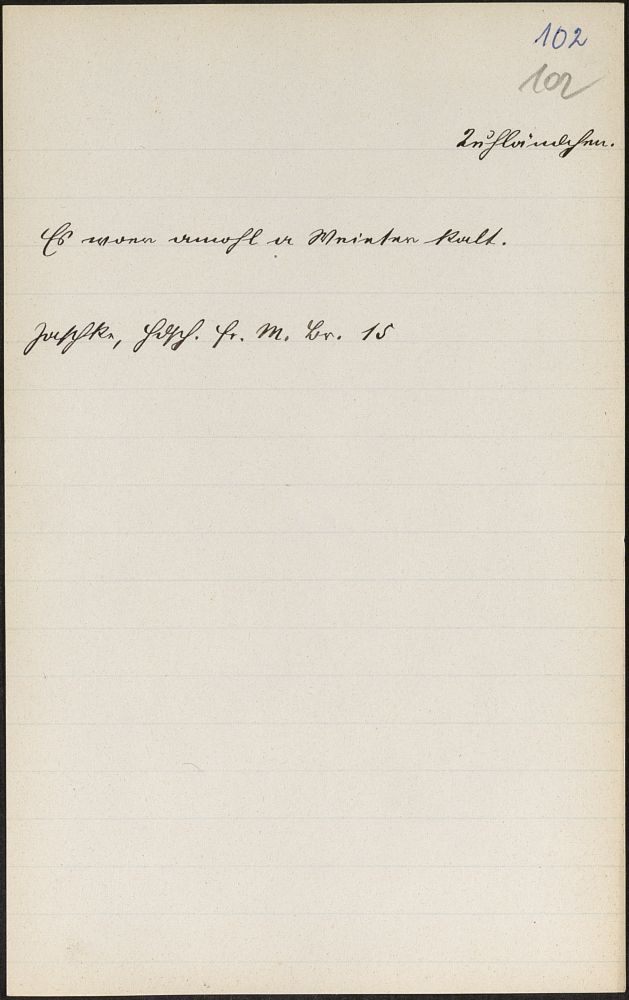 102
102
Kuhländchen.
Es woer amohl a Weinter kalt.
Jaschke, Hdsch. fr. M. Br. 15